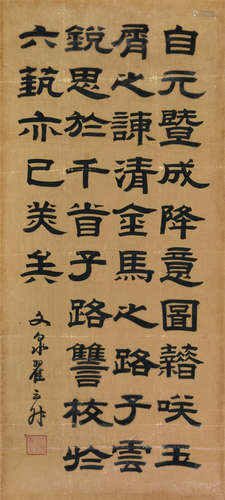 自元暨成降意圖籍咲玉
屑之諫清金馬之路子雲
銳思於千首子路讐校於
六蓺亦已美矣
文泉翟云升